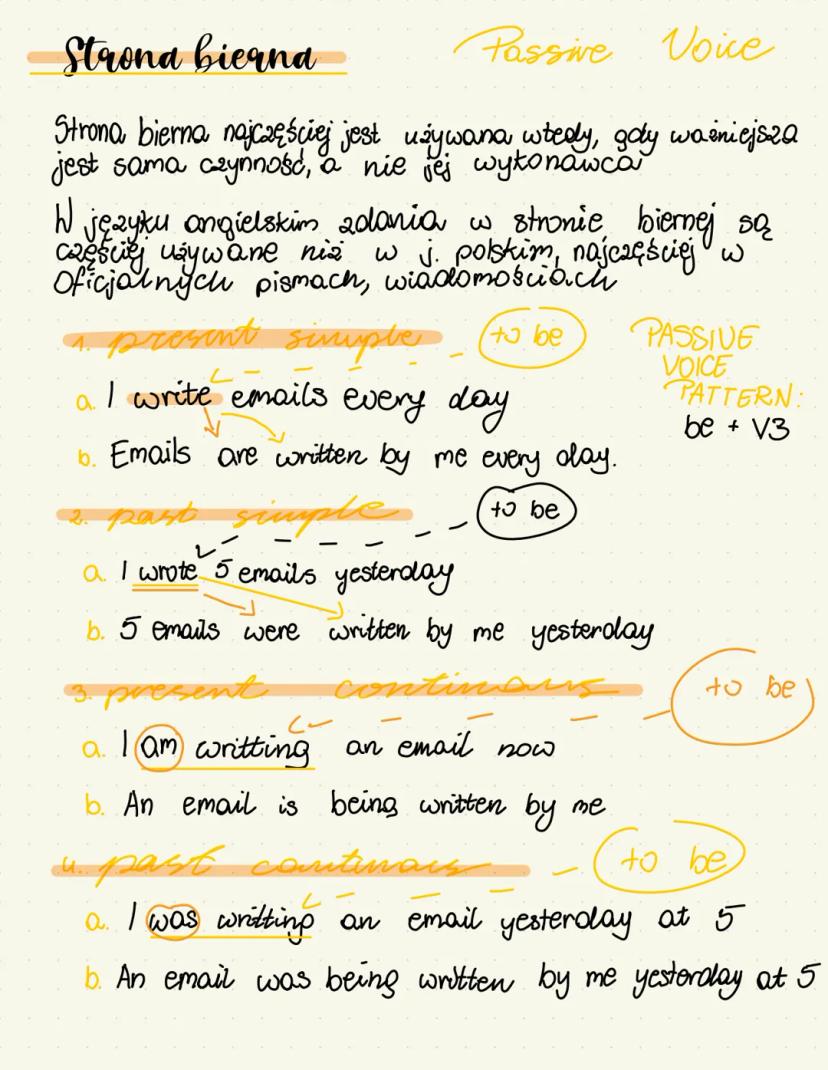 Strona bierna
Passive Voice
Strona bierna najczęściej jest używana wtedy, gdy ważniejsza
jest sama czynność, a nie jej wykonawca
W języku angielskim zdania w stronie biernej są
częściej używane niż w j. polskim, najczęściej w
oficjalnych pismach, wiadomościach
1. present simple
to be
PASSIVE
VOICE
PATTERN:
be + V3
a. I write emails every day
b. Emails are written by me every day.
2. past simple
to be
a. I wrote 5 emails yesterday
b. 5 emails were written by me yesterday
3. present continous
to be
a. I am writting an email now
b. An email is being written by me
4. past continous
to be
a. I was writting an email yesterday at 5
b. An email was being written by me yesterday at 5